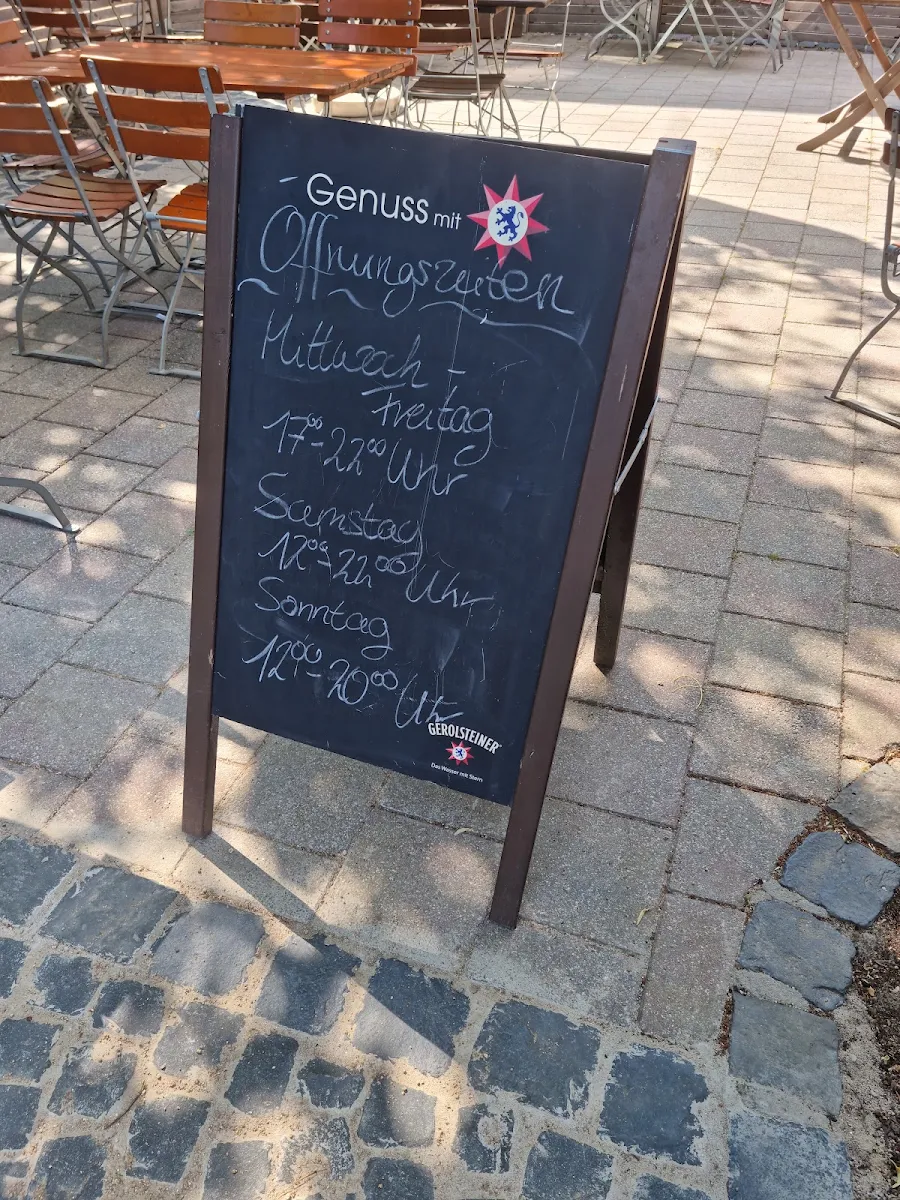 Genuss mit
Öffnungszeiten
Mittwoch -
Freitag
17⁰⁰-22⁰⁰ Uhr
Samstag
12⁰⁰-22⁰⁰ Uhr
Sonntag
12⁰⁰-20⁰⁰ Uhr
GEROLSTEINER
Das Wasser mit Stern